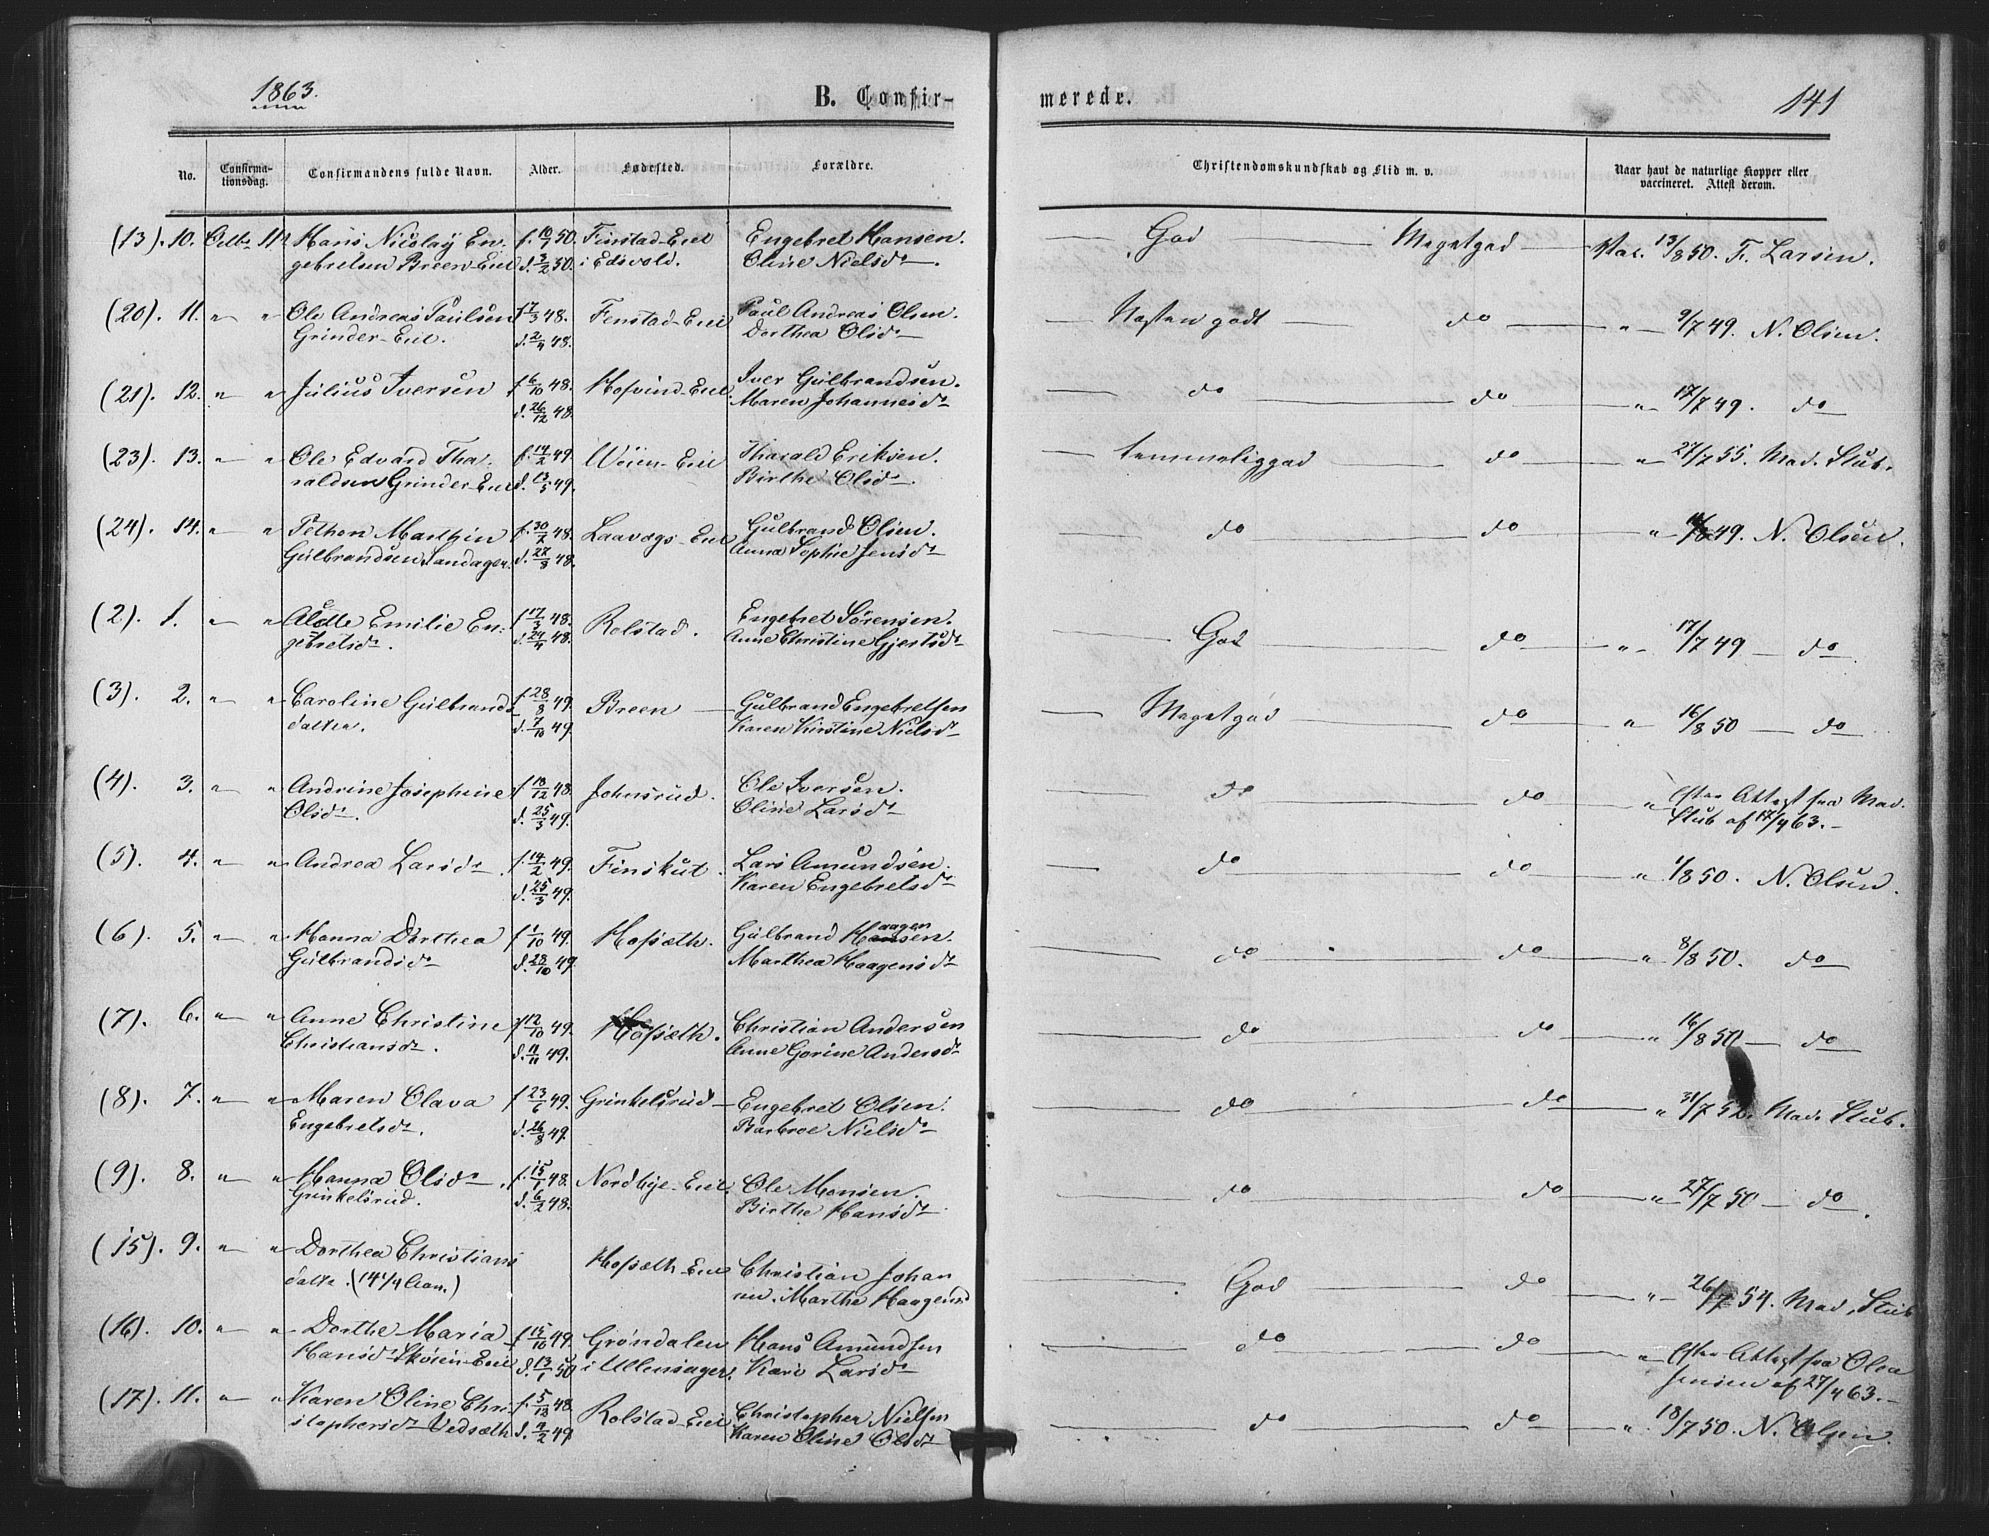 1863.
B. Confir-
merede.
141
No.
Confirma-
tionsdag.
Confirmandens fulde Navn.
Alder.
Fødested.
Forældre.
Christendomskundskab og Flid m. v.
Naar havt de naturlige Kopper eller
vaccineret. Attest derom.
(13). 10. Octbr 11te Hans Nicolay En- f. 10/7 50. Finstad-Eiet Engebret Hansen. God Megetgod Vac. 13/8 50. F. Larsen.
gebretsen Breen-Eiet d. 3/2 50. i Edsvold. Oline Nielsdr
(20). 11. " " Ole Andreas Paulsen f. 7/3 48. Fenstad-Eiet Paul Andreas Olsen. Næsten godt do " 9/7 49. N. Olsen.
Grinder-Eiet. d. 2/4 48. Dorthea Olsdr
(21). 12. " " Julius Iversen f. 6/10 48. Hofvind-Eiet. Iver Gulbrandsen. do do " 17/7 49. do
d. 26/12 48. Maren Johannesdr
(23). 13. " " Ole Edvard Tha- f. 14/2 49. Wøien-Eiet Tharald Eriksen. temmeliggod do " 27/7 55. Mad. Stub.
raldsen Grinder-Eiet d. 13/5 49. Birthe Olsdr
(24). 14. " " Pethon Marthin f. 30/7 48. Laavegs-Eiet Gulbrand Olsen. do do " 49. N. Olsen.
Gulbrandsen Sandager. d. 27/8 48. Anna Sophie Jensdr
(2). 1. " " Alette Emilie En- f. 17/3 48. Rolstad. Engebret Sørensen. God do " 17/7 49 do
gebretsdr. d. 24/4 48. Anne Christine Gjertsdr
(3). 2. " " Caroline Gulbrands f. 28/8 49. Breen Gulbrand Engebretsen Megetgod do " 16/8 50 do
datter. d. 7/10 49. Karen Kirstine Nielsdr
(4). 3. " " Andrine Josephine f. 10/12 48. Johnsrud. Ole Iversen. do do " Efter Attest fra Mad.
Olsdr. d. 25/3 49. Oline Larsdr Stub af 17/4 63.
(5). 4. " " Andrea Larsdr. f. 14/2 49. Finskut. Lars Amundsen. do do " 1/8 50. N. Olsen.
d. 25/3 49. Karen Engebretsdr
(6). 5. " " Hanna Dorthea f. 1/10 49. Hofsæth. Gulbrand Haagensen. do do " 8/8 50. do
Gulbrandsdr d. 28/10 49. Marthea Haagensdr
(7). 6. " " Anne Christine f. 12/10 49. Hofsæth. Christian Andersen do do " 16/8 50 do
Christiansdr. d. 11/11 49. Anne Gorine Andersdr
(8). 7. " " Maren Olava f. 23/6 49. Grinkelsrud Engebret Olsen. do do " 31/7 52. Mad. Stub.
Engebretsdr. d. 26/8 49. Barbroe Nielsdr
(9). 8. " " Hanna Olsdr. f. 15/1 48. Nordbye-Eiet. Ole Monsen. do do " 27/7 50 do
Grinkelsrud. d. 6/2 48. Birthe Hansdr
(15). 9. " " Dorthea Christians Hofsæth-Eiet Christian Johan God do " 26/7 54. Mad. Stub
datter. (14 1/4 Aar.) nes. Marthe Haagensd
(16). 10. " " Dorthe Maria f. 15/10 49. Grøndalen Hans Amundsen do do " Efter Attest fra Olea
Hansdr Skøien-Eiet d. 13/1 50. i Ullensager. Kari Larsdr Jensen af 27/4 63.
(17). 11. " " Karen Oline Chri- f. 5/12 48. Rolstad-Eiet Christopher Nielsen do do " 18/7 50. N. Olsen.
stophersdr Vedsæth d. 4/2 49. Karen Oline Olsdr